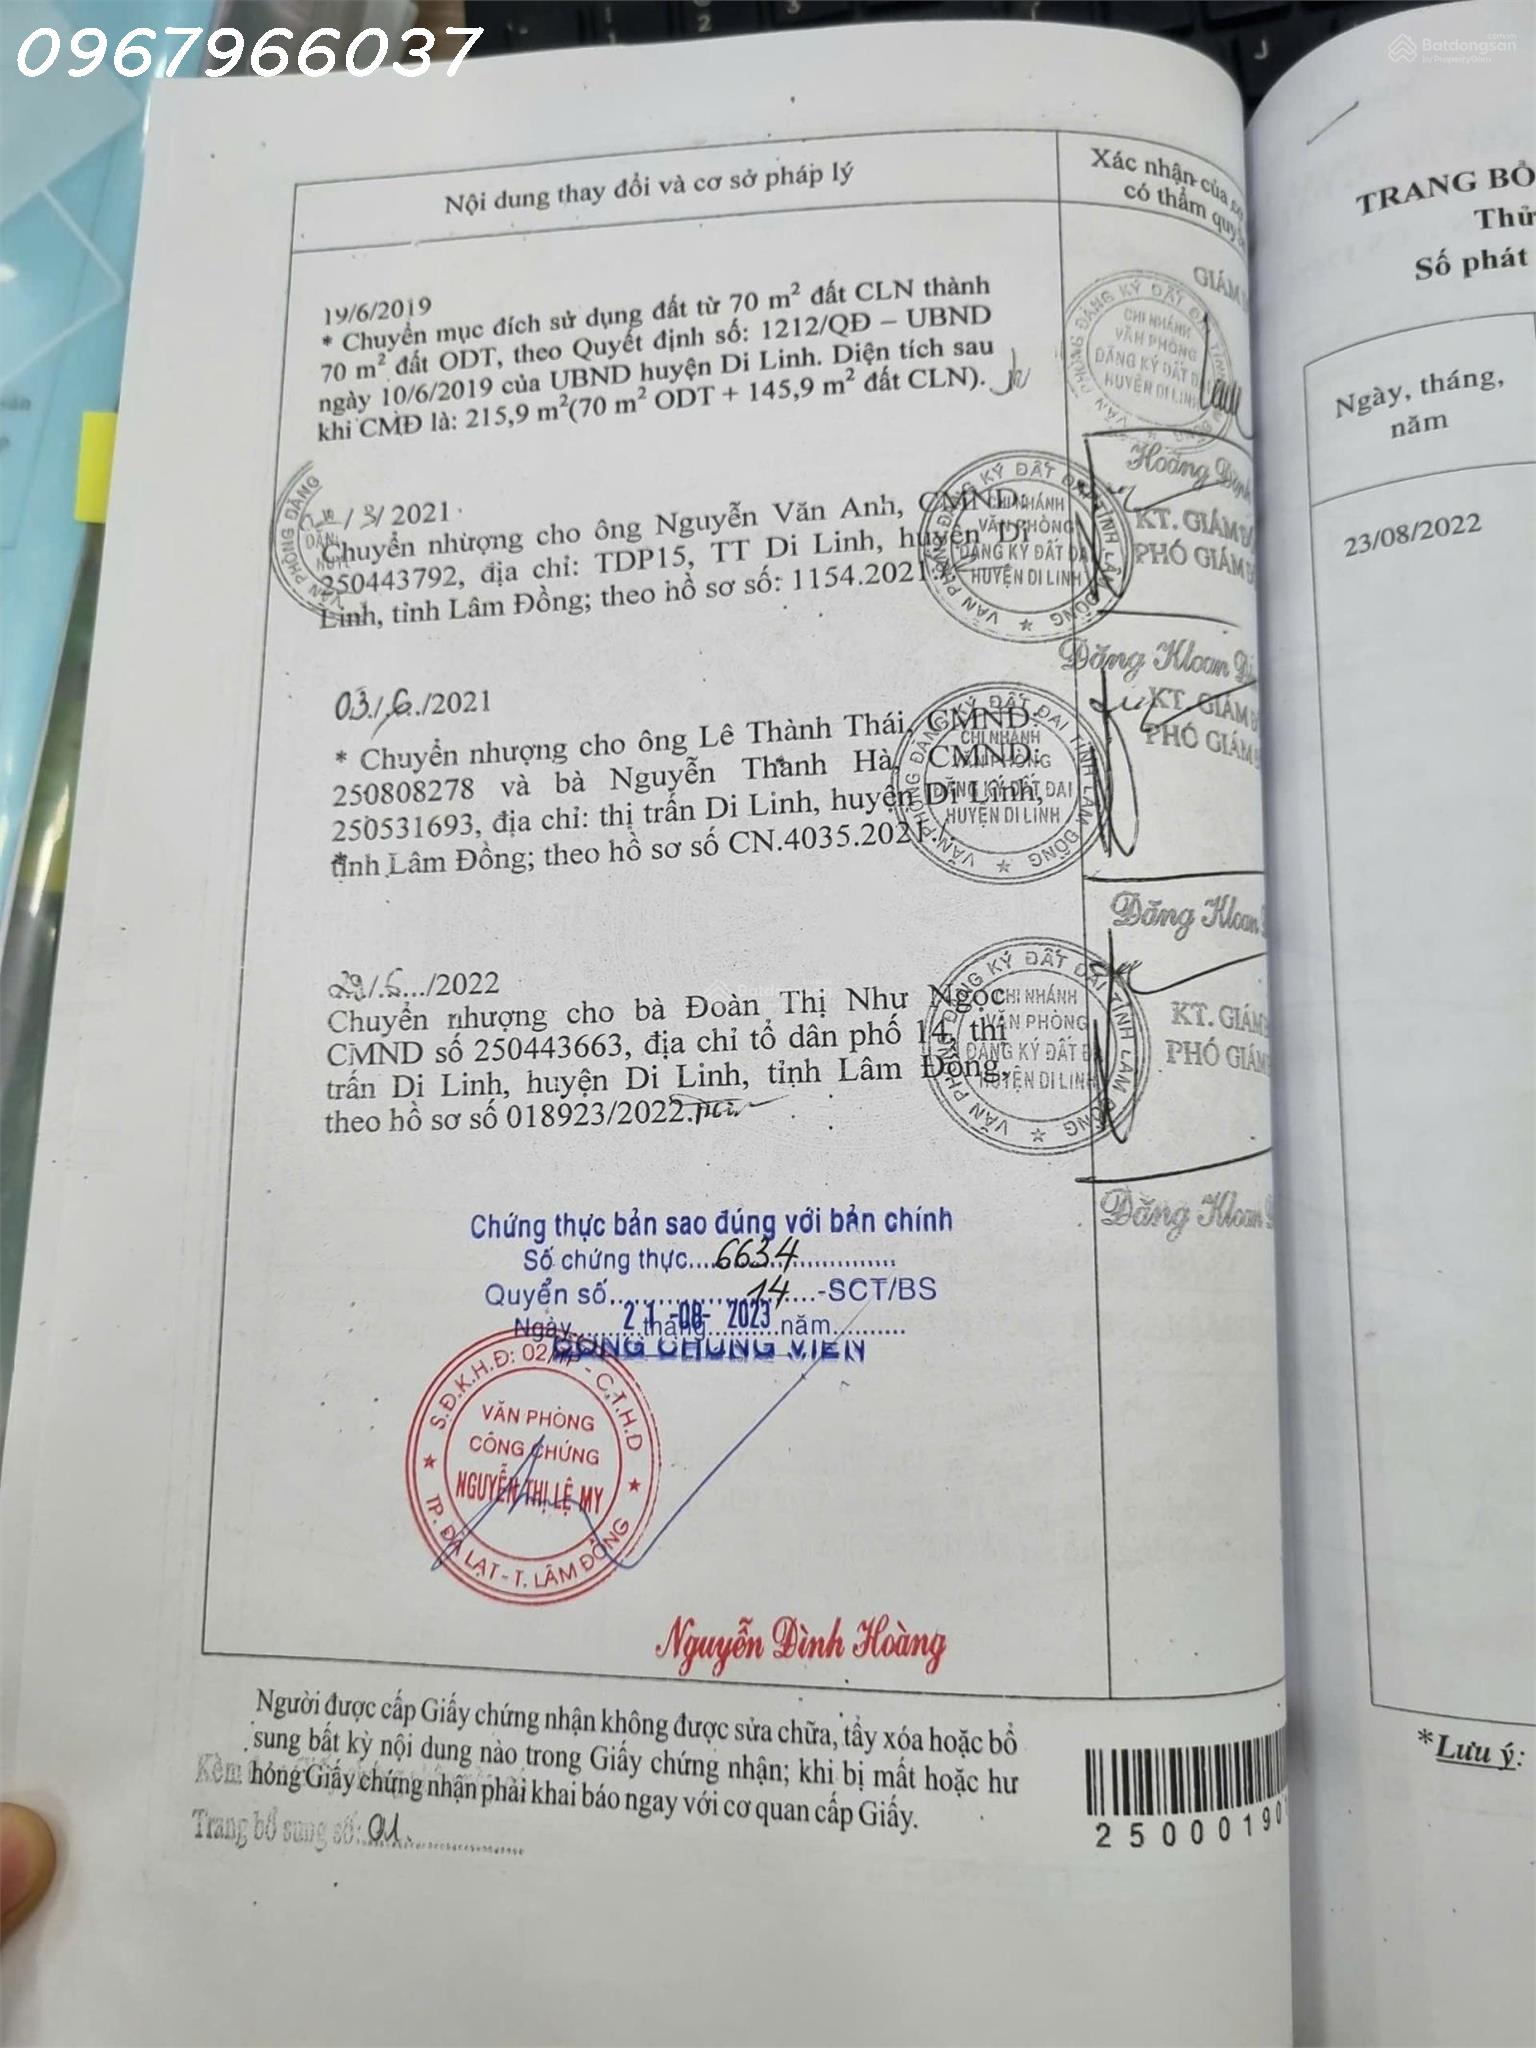 0967966037
Batdongsan
by PropertyGuru
Nội dung thay đổi và cơ sở pháp lý
Xác nhận của
có thẩm
19/6/2019
* Chuyển mục đích sử dụng đất từ 70 m² đất CLN thành
70 m² đất ODT, theo Quyết định số: 1212/QĐ – UBND
ngày 10/6/2019 của UBND huyện Di Linh. Diện tích sau
khi CMĐ là: 215,9 m²(70 m² ODT + 145,9 m² đất CLN).
VĂN PHÒNG ĐĂNG KÝ ĐẤT
CHI NHÁNH
VĂN PHÒNG
ĐĂNG KÝ ĐẤT
HUYỆN DI LINH
/3/2021
Chuyển nhượng cho ông Nguyễn Văn Anh, CMND:
250443792, địa chỉ: TDP15, TT Di Linh, huyện Di
Linh, tỉnh Lâm Đồng; theo hồ sơ số: 1154.2021
VĂN PHÒNG ĐĂNG KÝ ĐẤT ĐAI TỈNH LÂM ĐỒNG
CHI NHÁNH
VĂN PHÒNG
ĐĂNG KÝ ĐẤT ĐAI
HUYỆN DI LINH
KT. GIÁM
PHÓ GIÁM
Đăng Kloan
03/6/2021
* Chuyển nhượng cho ông Lê Thành Thái, CMND:
250808278 và bà Nguyễn Thanh Hà, CMND:
250531693, địa chỉ: thị trấn Di Linh, huyện Di Linh,
tỉnh Lâm Đồng; theo hồ sơ số CN.4035.2021./.
VĂN PHÒNG ĐĂNG KÝ ĐẤT ĐAI TỈNH LÂM ĐỒNG
CHI NHÁNH
VĂN PHÒNG
ĐĂNG KÝ ĐẤT ĐAI
HUYỆN DI LINH
KT. GIÁM
PHÓ GIÁM
Đăng Kloan
/2022
Chuyển nhượng cho bà Đoàn Thị Như Ngọc
CMND số 250443663, địa chỉ tổ dân phố 14, thị
trấn Di Linh, huyện Di Linh, tỉnh Lâm Đồng,
theo hồ sơ số 018923/2022.
VĂN PHÒNG ĐĂNG KÝ ĐẤT ĐAI TỈNH LÂM ĐỒNG
CHI NHÁNH
VĂN PHÒNG
ĐĂNG KÝ ĐẤT ĐAI
HUYỆN DI LINH
KT. GIÁM
PHÓ GIÁM
Đăng Kloan
Chứng thực bản sao đúng với bản chính
Số chứng thực....6634...............
Quyển số....................14....-SCT/BS
Ngày 21 tháng -08- 2023 năm
CÔNG CHỨNG VIÊN
VĂN PHÒNG
CÔNG CHỨNG
NGUYỄN THỊ LỆ MY
TP. ĐÀ LẠT - T. LÂM ĐỒNG
Nguyễn Đình Hoàng
Người được cấp Giấy chứng nhận không được sửa chữa, tẩy xóa hoặc bổ
sung bất kỳ nội dung nào trong Giấy chứng nhận; khi bị mất hoặc hư
hỏng Giấy chứng nhận phải khai báo ngay với cơ quan cấp Giấy.
Kèm
Trang bổ sung số: 01
2500019
TRANG BỔ
Số phát
Ngày, tháng,
năm
23/08/2022
*Lưu ý: